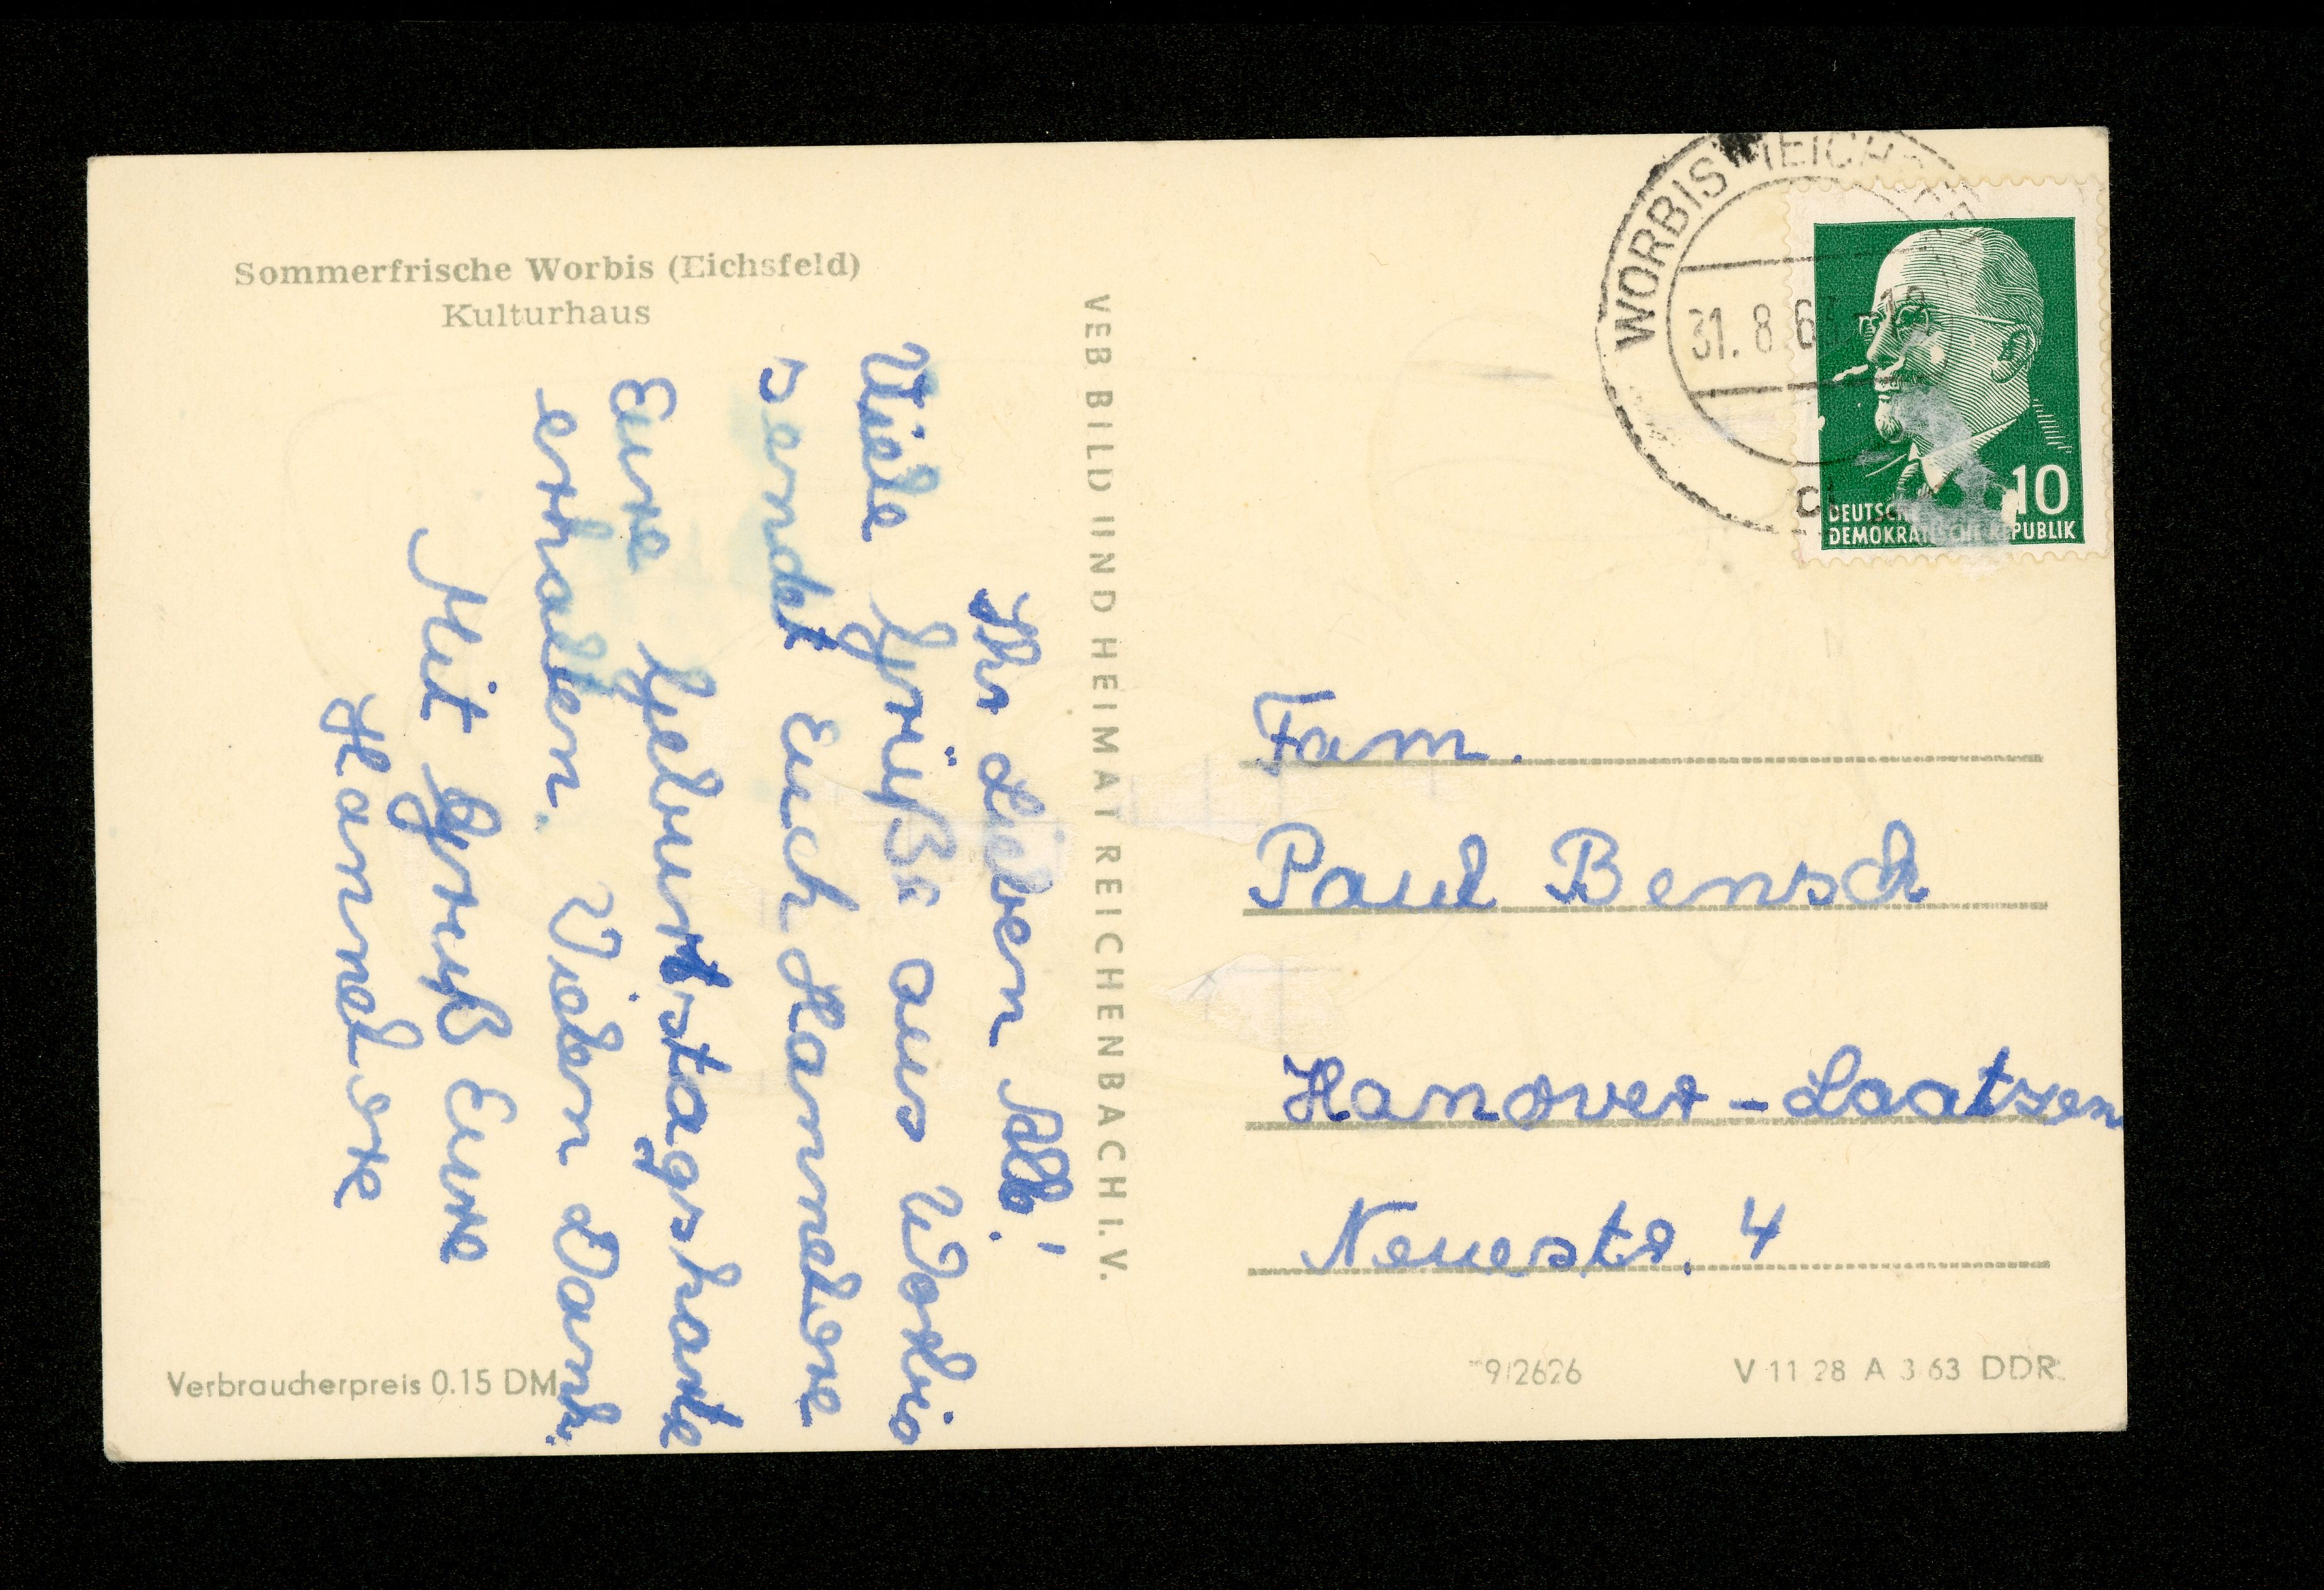 Sommerfrische Worbis (Eichsfeld)
Kulturhaus
Ihr Lieben All!
Viele Grüße aus Worbis
sendet Euch Hannelore
Eure Geburtstagskarte
erhalten. Vielen Dank.
Mit Gruß Eure
Hannelore
Verbraucherpreis 0.15 DM
VEB BILD UND HEIMAT REICHENBACH I.V.
WORBIS
31.8.63
10
DEUTSCHE
DEMOKRATISCHE REPUBLIK
Fam.
Paul Bensch
Hanover-Laatzen
Neuestr. 4
9/2626
V 11 28 A 3 63 DDR